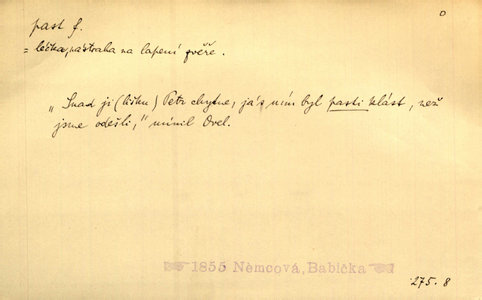 past f.
o
= léčka, nástraha na lapení zvěře.
„Snad ji (lišku) Petr chytne, já s ním byl pasti klást, než
jsme odešli," mínil Orel.
1855 Němcová, Babička
275. 8